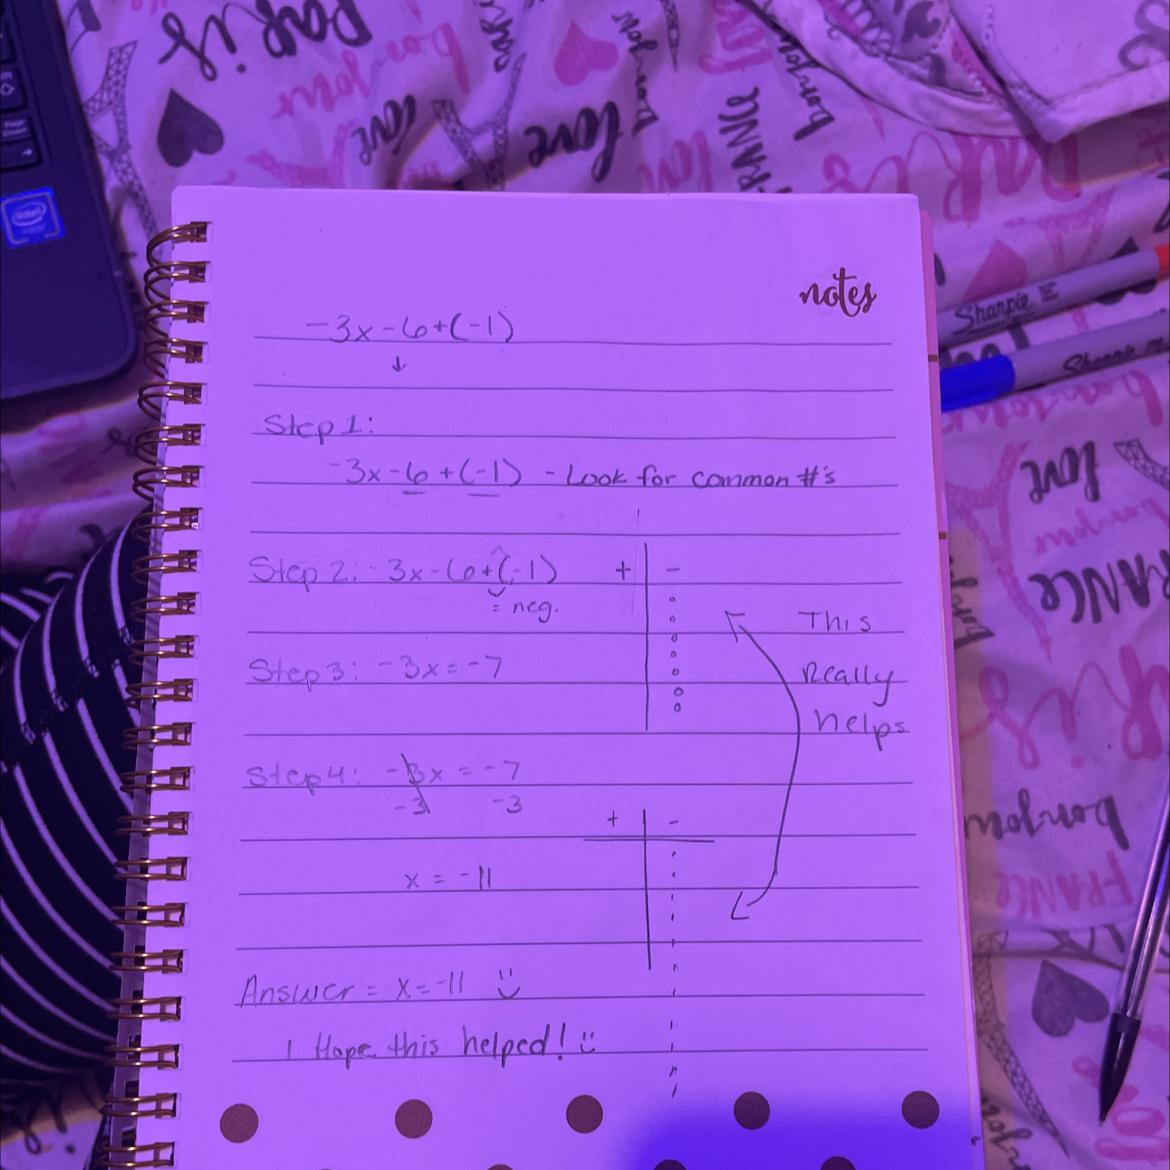 Paris
bonjour
love
love
FRANCE
bonjour
intel
notes
Sharpie
Sharpie
-3x-6+(-1)
↓
Step 1:
-3x-6+(-1) - Look for common #'s
Step 2: -3x-6+(-1)
= neg.
+ -
This
Really
helps
Step 3: -3x=-7
Step 4: -3x = -7
-3 -3
+ -
x = -11
Answer = x=-11
I Hope this helped!
love
FRANCE
bonjour
FRANCE